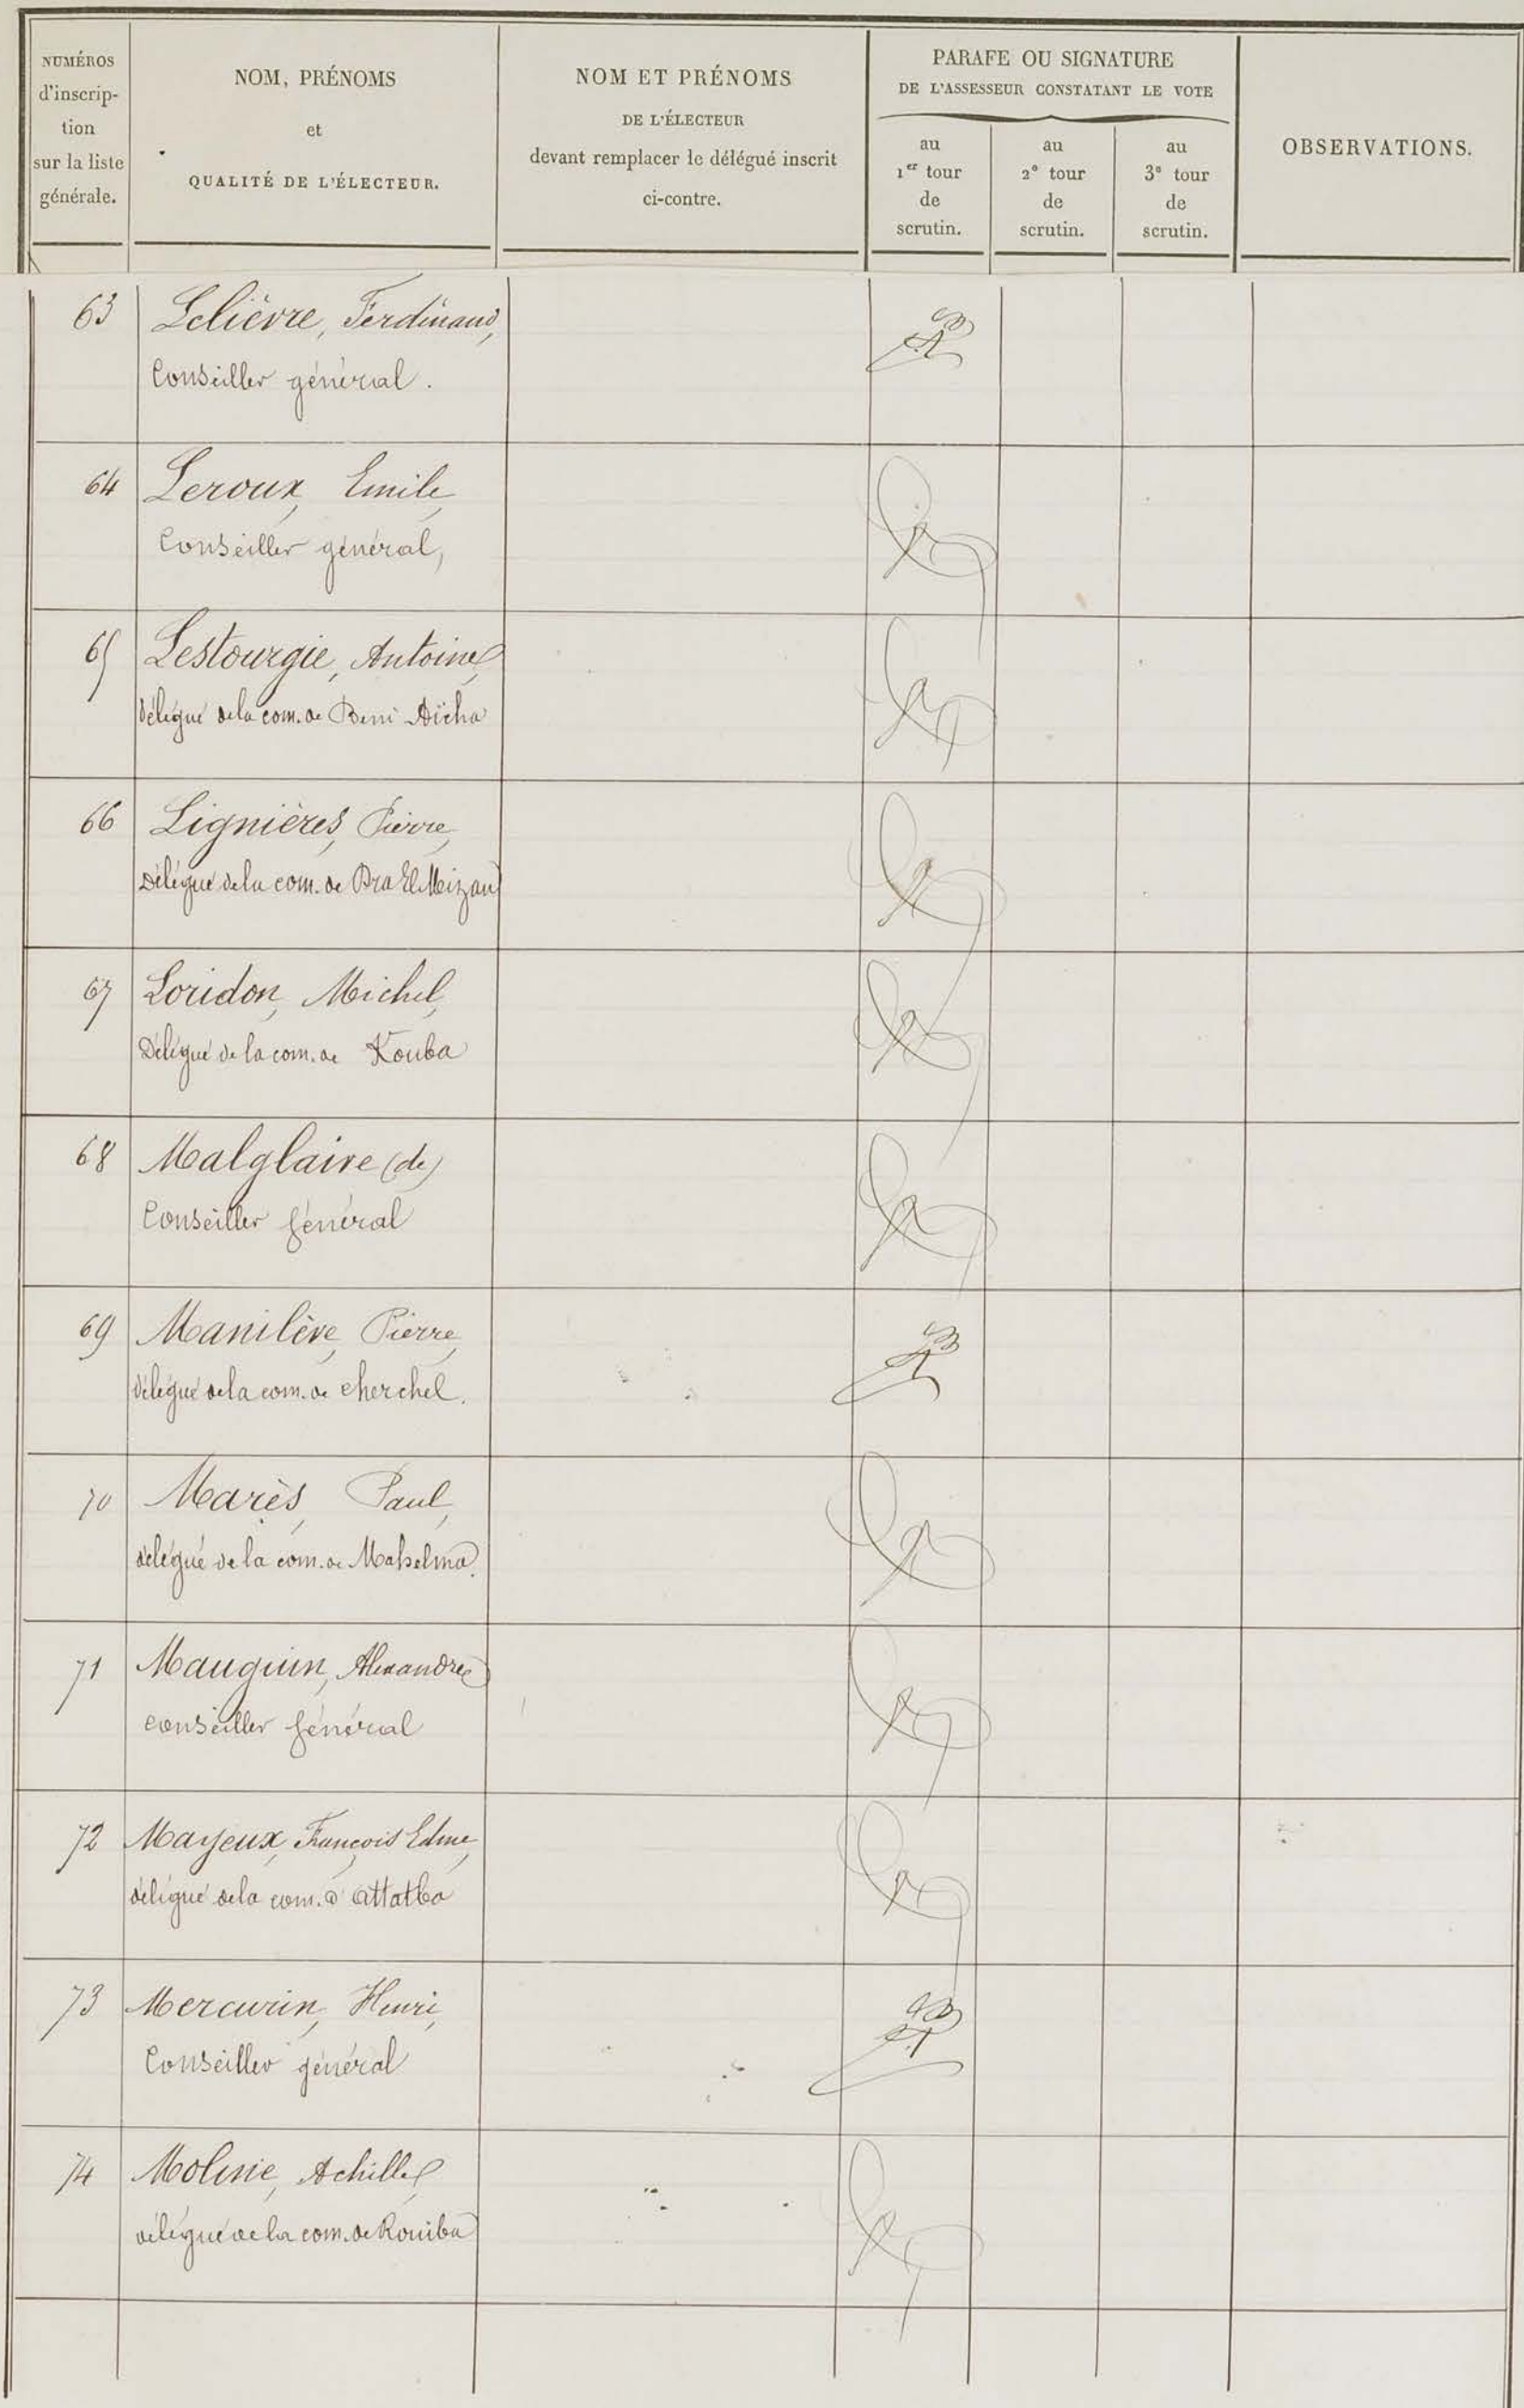 NUMÉROS
d'inscrip-
tion
sur la liste
générale.
NOM, PRÉNOMS
et
QUALITÉ DE L'ÉLECTEUR.
NOM ET PRÉNOMS
DE L'ÉLECTEUR
devant remplacer le délégué inscrit
ci-contre.
PARAFE OU SIGNATURE
DE L'ASSESSEUR CONSTATANT LE VOTE
au
1er tour
de
scrutin.
au
2e tour
de
scrutin.
au
3e tour
de
scrutin.
OBSERVATIONS.
63 Lelièvre, Ferdinand,
Conseiller général.
64 Leroux, Emile,
Conseiller général,
65 Lestourgie, Antoine,
Délégué de la com. de Beni Aïcha
66 Lignières, Pierre,
Délégué de la com. de Dra El Meizan
67 Loridon, Michel,
Délégué de la com. de Kouba
68 Malglaive (de)
Conseiller général
69 Manilève, Pierre,
délégué de la com. de Cherchel.
70 Marès, Paul,
délégué de la com. de Mahelma.
71 Mauguin, Alexandre
conseiller général
72 Mayeux, François Edme,
délégué de la com. d'Attatba
73 Mercurin, Henri,
Conseiller général
74 Molinié, Achille,
délégué de la com. de Rouiba